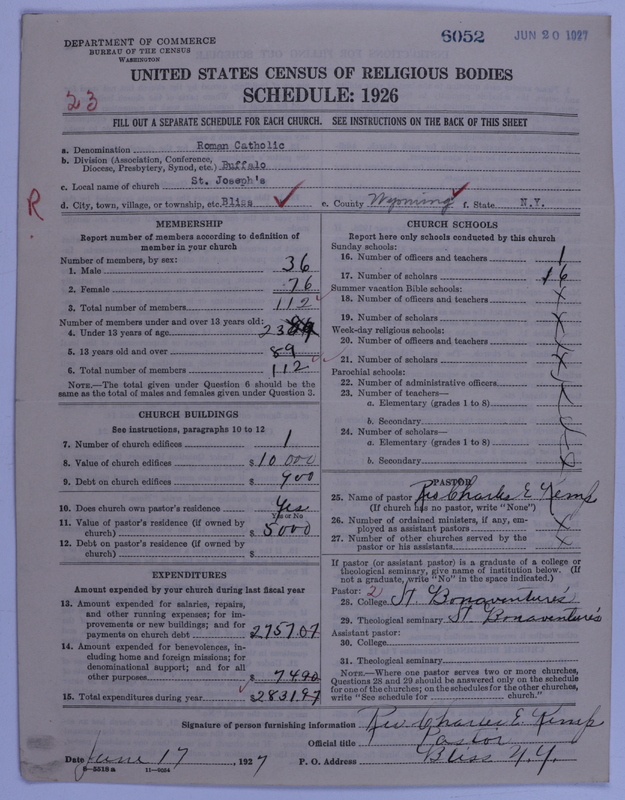 6052 JUN 20 1927
DEPARTMENT OF COMMERCE
BUREAU OF THE CENSUS
WASHINGTON
UNITED STATES CENSUS OF RELIGIOUS BODIES
23
SCHEDULE: 1926
FILL OUT A SEPARATE SCHEDULE FOR EACH CHURCH. SEE INSTRUCTIONS ON THE BACK OF THIS SHEET
a. Denomination Roman Catholic
b. Division (Association, Conference,
Diocese, Presbytery, Synod, etc.) Buffalo
c. Local name of church St. Joseph's
R
d. City, town, village, or township, etc. Bliss e. County Wyoming f. State N.Y.
MEMBERSHIP
Report number of members according to definition of
member in your church
Number of members, by sex:
1. Male 36
2. Female 76
3. Total number of members 112
Number of members under and over 13 years old:
4. Under 13 years of age 23
5. 13 years old and over 89
6. Total number of members 112
NOTE.—The total given under Question 6 should be the
same as the total of males and females given under Question 3.
CHURCH BUILDINGS
See instructions, paragraphs 10 to 12
7. Number of church edifices 1
8. Value of church edifices $10 000
9. Debt on church edifices $ 900
10. Does church own pastor's residence? Yes
Yes or No
11. Value of pastor's residence (if owned by
church) $5000
12. Debt on pastor's residence (if owned by
church) $
EXPENDITURES
Amount expended by your church during last fiscal year
13. Amount expended for salaries, repairs,
and other running expenses; for im-
provements or new buildings; and for
payments on church debt 2757.07
14. Amount expended for benevolences, in-
cluding home and foreign missions; for
denominational support; and for all
other purposes $ 7490
15. Total expenditures during year 2831.97
CHURCH SCHOOLS
Report here only schools conducted by this church
Sunday schools:
16. Number of officers and teachers 1
17. Number of scholars 16
Summer vacation Bible schools:
18. Number of officers and teachers X
19. Number of scholars X
Week-day religious schools:
20. Number of officers and teachers X
21. Number of scholars X
Parochial schools:
22. Number of administrative officers
23. Number of teachers—
a. Elementary (grades 1 to 8)
b. Secondary
24. Number of scholars—
a. Elementary (grades 1 to 8)
b. Secondary
PASTOR
25. Name of pastor Rev Charles E. Kemp
(If church has no pastor, write "None")
26. Number of ordained ministers, if any, em-
ployed as assistant pastors X
27. Number of other churches served by the
pastor or his assistants X
If pastor (or assistant pastor) is a graduate of a college or
theological seminary, give name of institution below. (If
not a graduate, write "No" in the space indicated.)
Pastor: 2
28. College St. Bonaventure's
29. Theological seminary St. Bonaventure's
Assistant pastor:
30. College
31. Theological seminary
NOTE.—Where one pastor serves two or more churches,
Questions 28 and 29 should be answered only on the schedule
for one of the churches; on the schedules for the other churches,
write "See schedule for church."
Signature of person furnishing information Rev. Charles E. Kemp
Official title Pastor
Date June 17, 1927 P. O. Address Bliss N.Y.
8-5518 a 11-9024